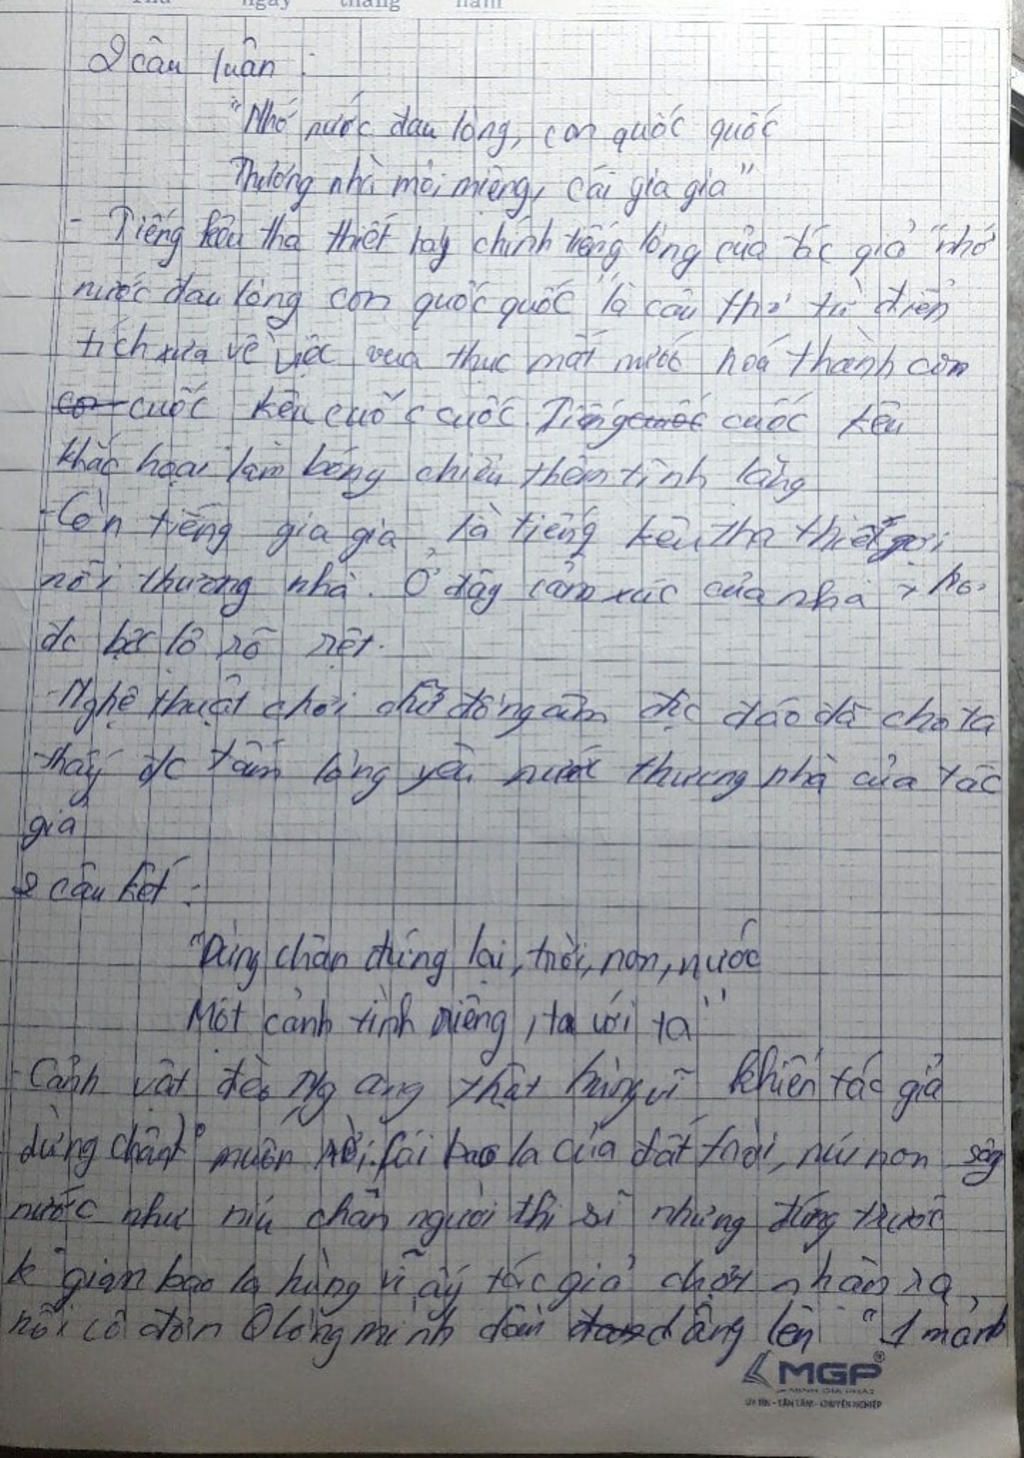 ngày tháng năm
2 câu luận :
"Nhớ nước đau lòng, con quốc quốc
Thương nhà mỏi miệng, cái gia gia"
- Tiếng kêu tha thiết hay chính tiếng lòng của tác giả "nhớ
nước đau lòng con quốc quốc" là câu thơ từ điển
tích xưa về việc vua thục mất nước hoá thành con
cuốc kêu cuốc cuốc. Tiếng cuốc kêu
khắc hoại làm bóng chiều thêm tĩnh lặng
- Còn tiếng gia gia là tiếng kêu tha thiết gợi
nỗi thương nhà. Ở đây cảm xúc của nhà thơ
đc bộc lộ rõ rệt.
- Nghệ thuật chơi chữ đồng âm độc đáo đã cho ta
thấy đc tấm lòng yêu nước thương nhà của tác
giả
2 câu kết :
"Dừng chân đứng lại, trời, non, nước
Một cảnh tình riêng, ta với ta"
- Cảnh vật đèo Ng ang thật hùng vĩ khiến tác giả
dừng chân k° muốn rời. Cái bao la của đất trời, núi non sông
nước như níu chân người thi sĩ nhưng đứng trước
k° gian bao la hùng vĩ ấy tác giả chợt nhận ra
nỗi cô đơn ở lòng mình dần dâng lên "1 mảnh
MGP
MINH GIA PHÁT
UY TÍN - TẬN TÂM - CHUYÊN NGHIỆP